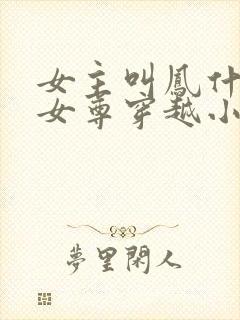 女主叫鳳什
女尊穿越小
夢里閑人